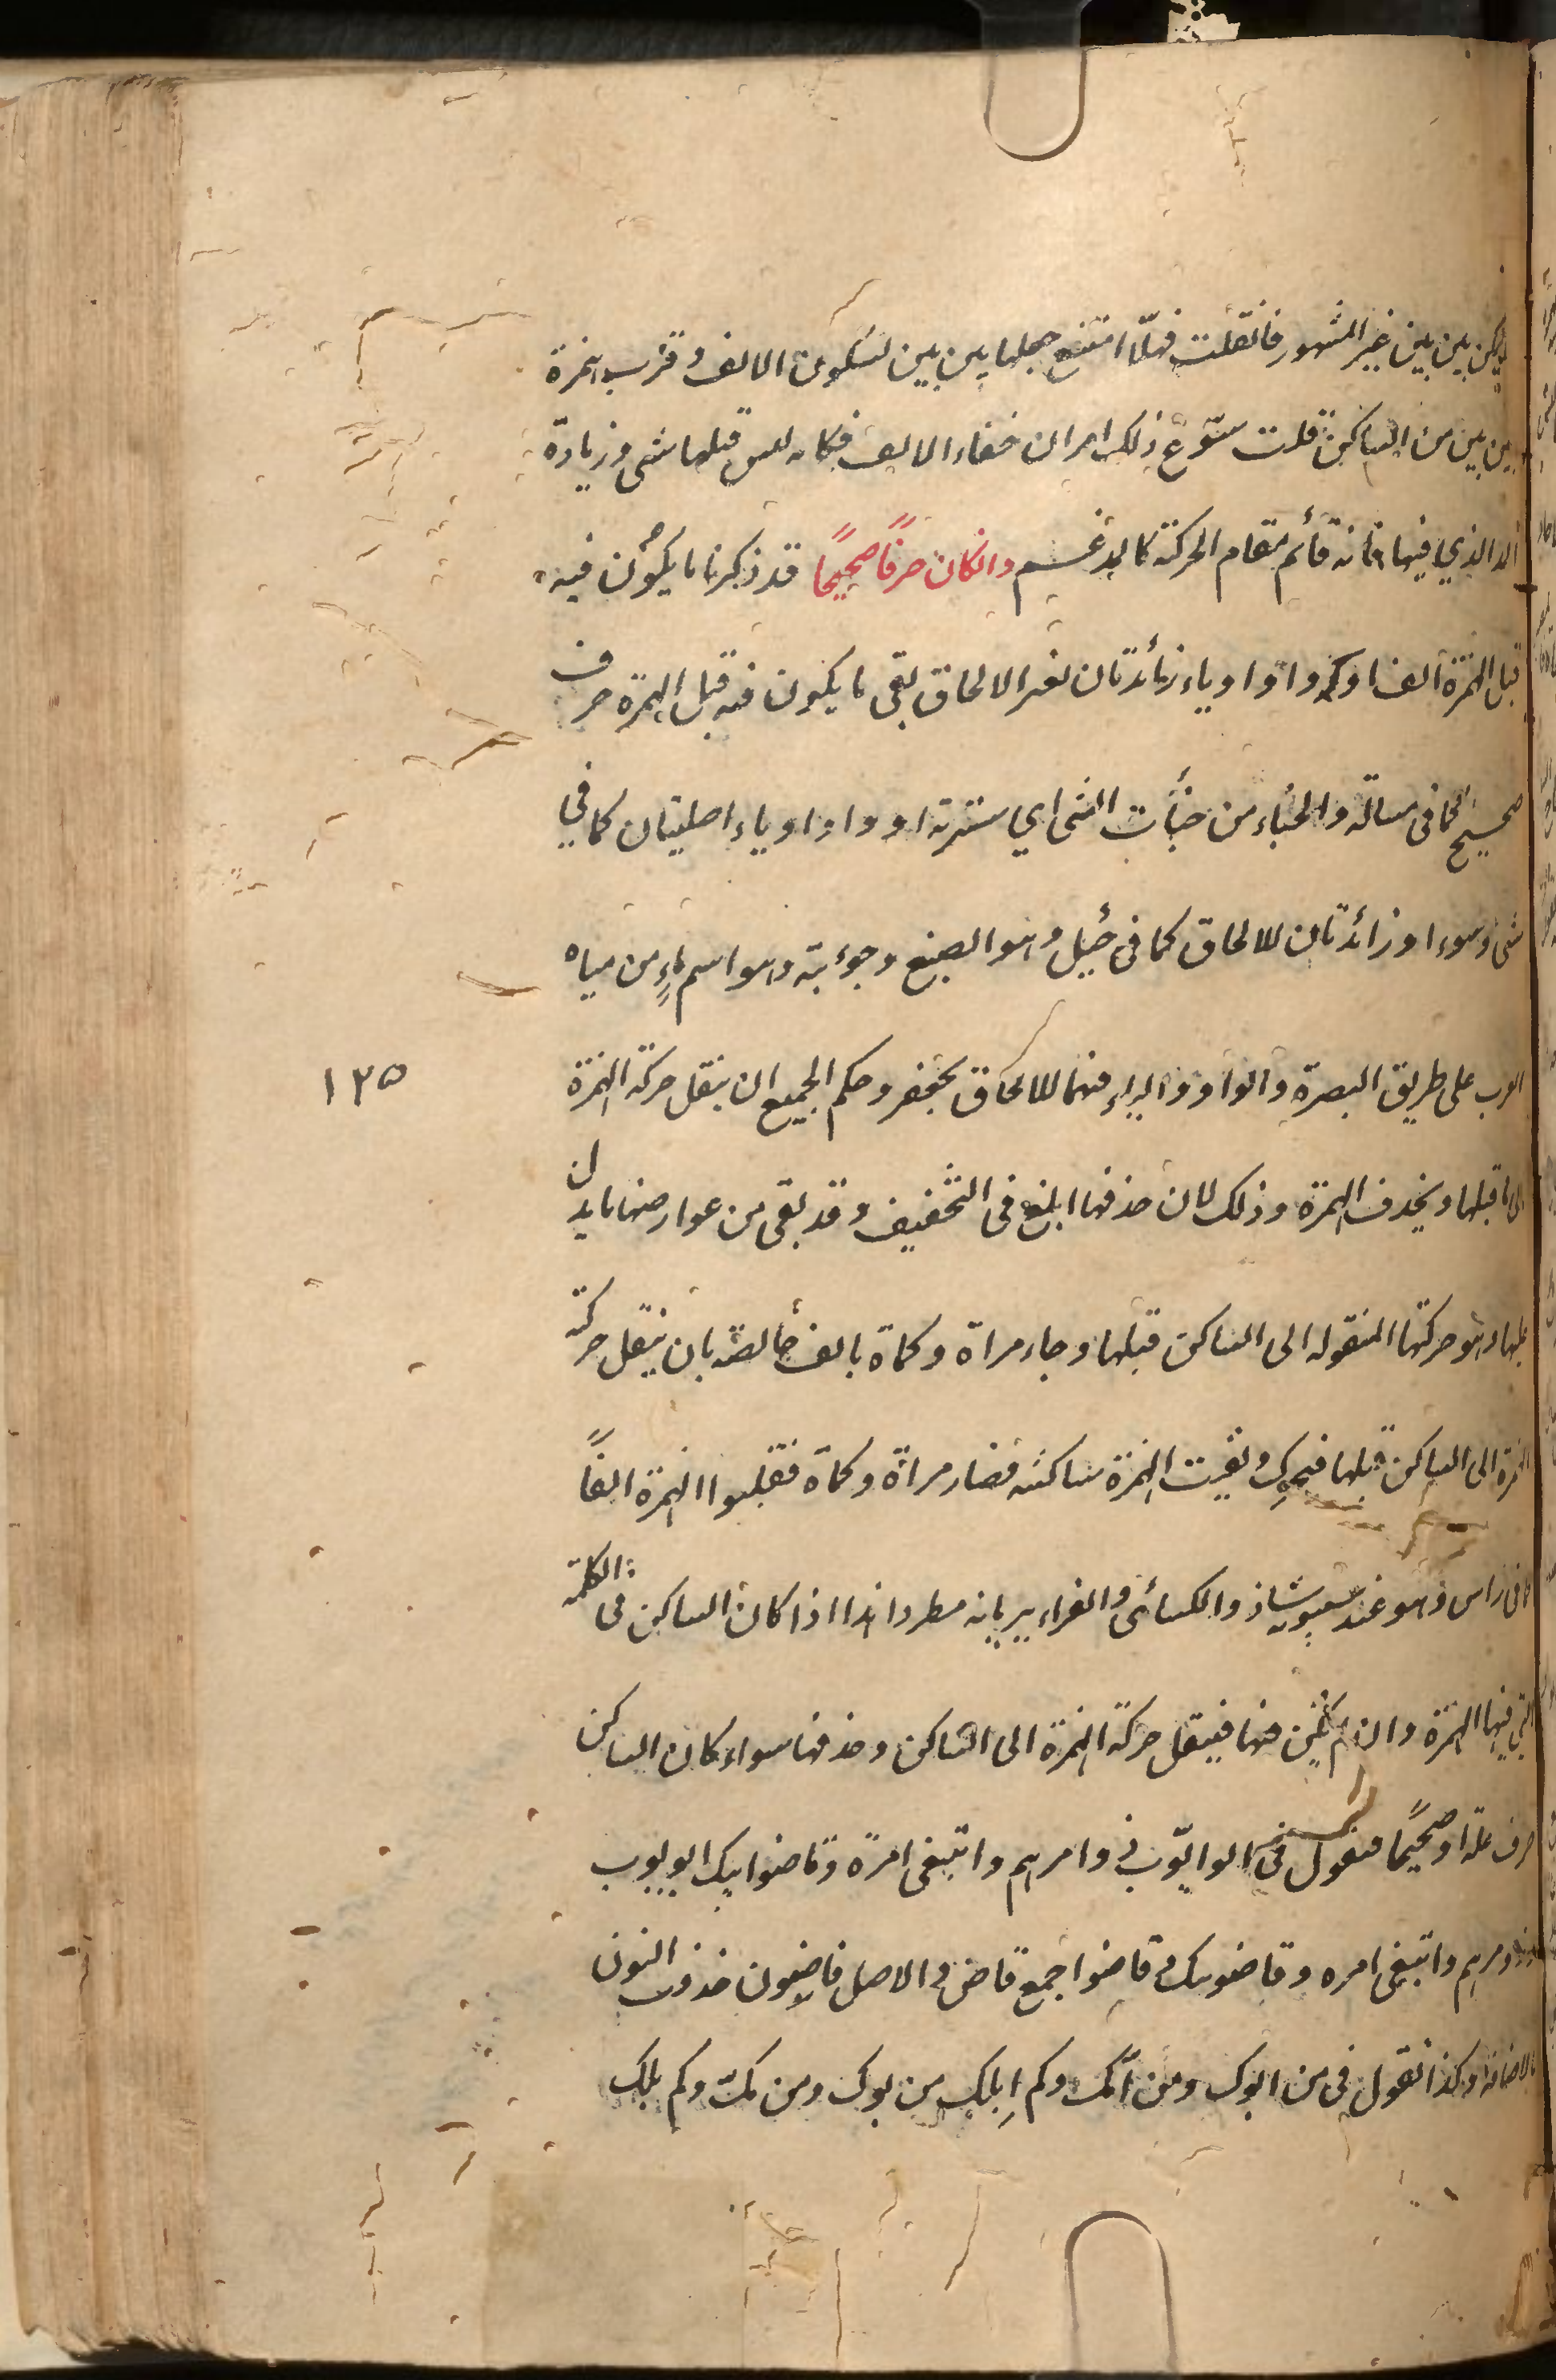 يكن بين بين غير المشهور فان قلت فهلّا امتنع جعلها بين بين لسكون الالف وقرب همزة
بين بين من الساكن قلت سوّغ ذلك امران خفاء الالف فكانه ليس قبلها شى وزيادة
المد الذي فيها فانه قائم مقام الحركة كالمدغم وان كان حرفًا صحيحًا قد ذكرنا ما يكون فيه
قبل الهمزة الف او واو او ياء زائدتان لغير الالحاق بقى ما يكون فيه قبل الهمزة حرف
صحيح كما فى مسألة والخباء من خبأت الشى اي سترته او واو او ياء اصليتان كما في
شى وسوء او زائدتان للالحاق كما فى جيئل وهو الضبع وجوءبة وهو اسم ماءٍ من مياه
العرب على طريق البصرة والواو والياء فيهما للالحاق بجعفر وحكم الجميع ان ينقل حركة الهمزة
الى ما قبلها ويحذف الهمزة وذلك لان حذفها ابلغ فى التخفيف وقد بقى من عوارضها ما يدل
عليها وهو حركتها المنقولة الى الساكن قبلها وجاء مراة وكماة بالف خالصة بان ينقل حركة
الهمزة الى الساكن قبلها فيحرك وبقيت الهمزة ساكنة فصار مرأة وكمأة فقلبوا الهمزة الفًا
كما فى راس وهو عند سيبويه شاذ والكسائى والفراء يريانه مطردا هذا اذا كان الساكن فى الكلمة
التي فيها الهمزة وان لم يكن منها فينقل حركة الهمزة الى الساكن وحذفها سواء كان الساكن
حرف علة او صحيحًا فنقول فى ابو ايّوب وذو امرهم واتبغى امره وقاضوا ابيك ابو يوب
وذو مرهم واتبغى مره وقاضو بيك وقاضوا جمع قاض والاصل قاضون حذفت النون
للاضافة وكذا نقول فى من ابوك ومن امّك وكم اِبلك من بوك ومن مّك وكم بلك
١٣٥